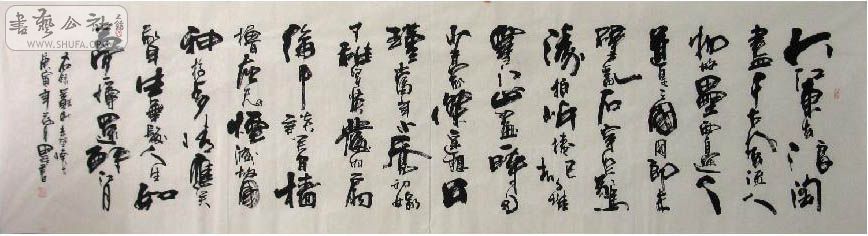 書藝公社
大江東去浪淘
盡千古風流人
物故壘西邊人
道是三國周郎赤
壁亂石穿空驚
濤拍岸捲起千堆
雪江山如畫一時多
少豪傑遙想公
瑾當年小喬初嫁
了雄姿英發羽扇
綸巾談笑間檣
櫓灰飛煙滅故國
神遊多情應笑
我早生華髮人生如
夢一尊還酹江月
庚寅年